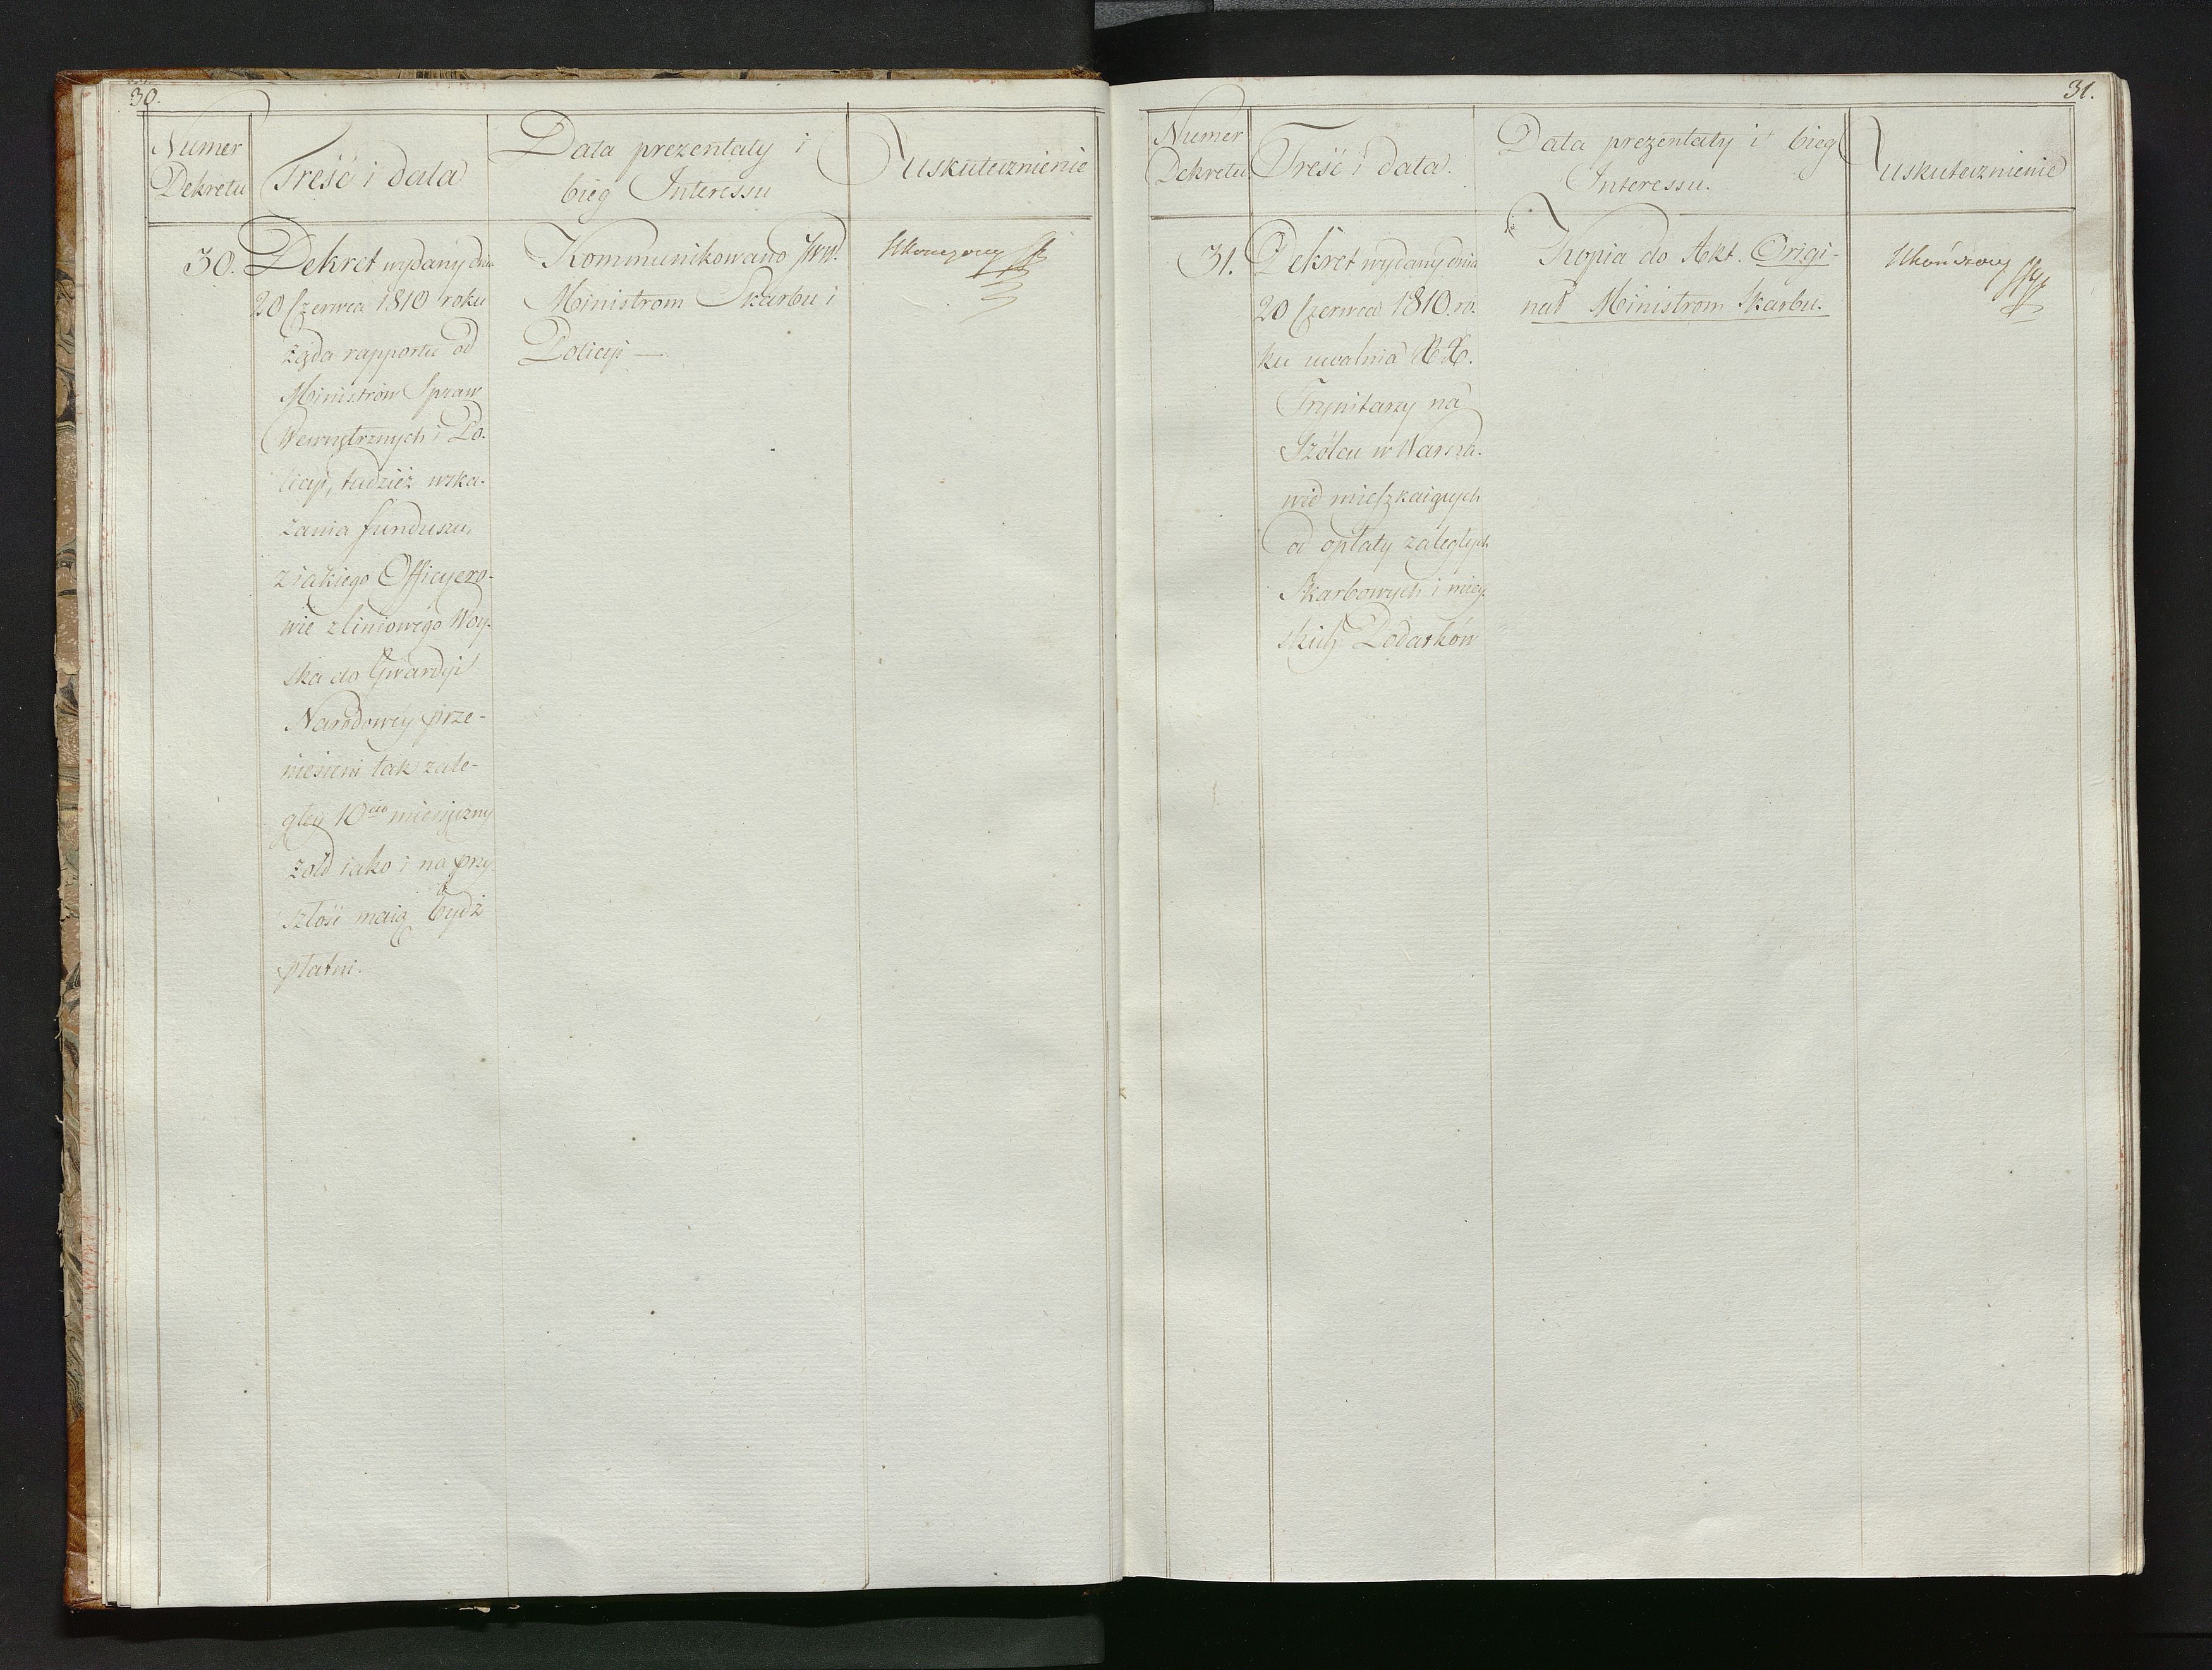 30.
Numer
Dekretu
Treść i data
Data prezentaty i
bieg Interessu
uskutecznienie
30.
Dekret wydany dnia
20 Czerwca 1810 roku
żąda rapportu od
Ministrów Spraw
Wewnętrznych i Po-
licyi, tudzież wska-
zania funduszu,
z iakiego Officyero-
wie z liniowégo Woy-
ska do Gwardyi
Narodowéy prze-
niesieni tak zale-
gły 10cio miesięczny
żołd iako i na przy-
szłość maią bydź
płatni.
Kommunikowano JWW.
Ministrom Skarbu i
Policyi —
Ukończony
31.
Numer
Dekretu
Treść i data.
Data prezentaty i bieg
Interessu.
uskutecznienie
31.
Dekret wydany dnia
20 Czerwca 1810. ro-
ku uwalnia XX.
Trynitarzy na
Szólcu w Warsza-
wie mieszkaiących
od opłaty zaległych
Skarbowych i miey-
skich Podatków
Kopia do Akt. Origi-
nał Ministrom Skarbu.
Ukończony